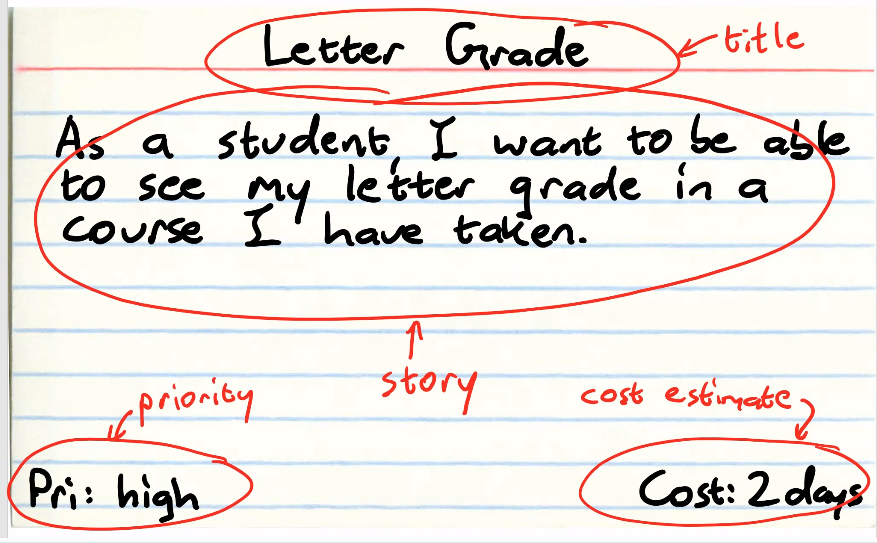 Letter Grade
title
As a student, I want to be able
to see my letter grade in a
course I have taken.
story
priority
cost estimate
Pri: high
Cost: 2 days